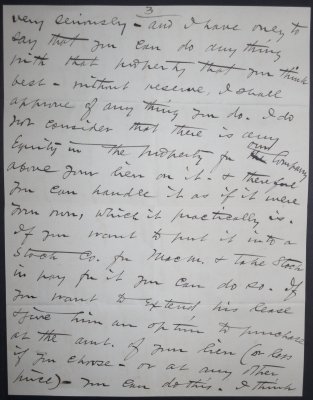 3
very seriously - and I have only to
say that you can do any thing
with that property that you think
best - without reserve, I shall
approve of any thing you do. I do
not consider that there is any
Equity in the property for our Company
above your lien on it - & therefore
you can handle it as if it were
your own, which it practically is.
If you want to put it into a
Stock Co. for Macm. & take Stock
in pay for it you can do so. If
you want to Extend his lease
& give him an option to purchase
at the amt. of your lien (or less
if you choose - or at any other
price) - you can do this. I think